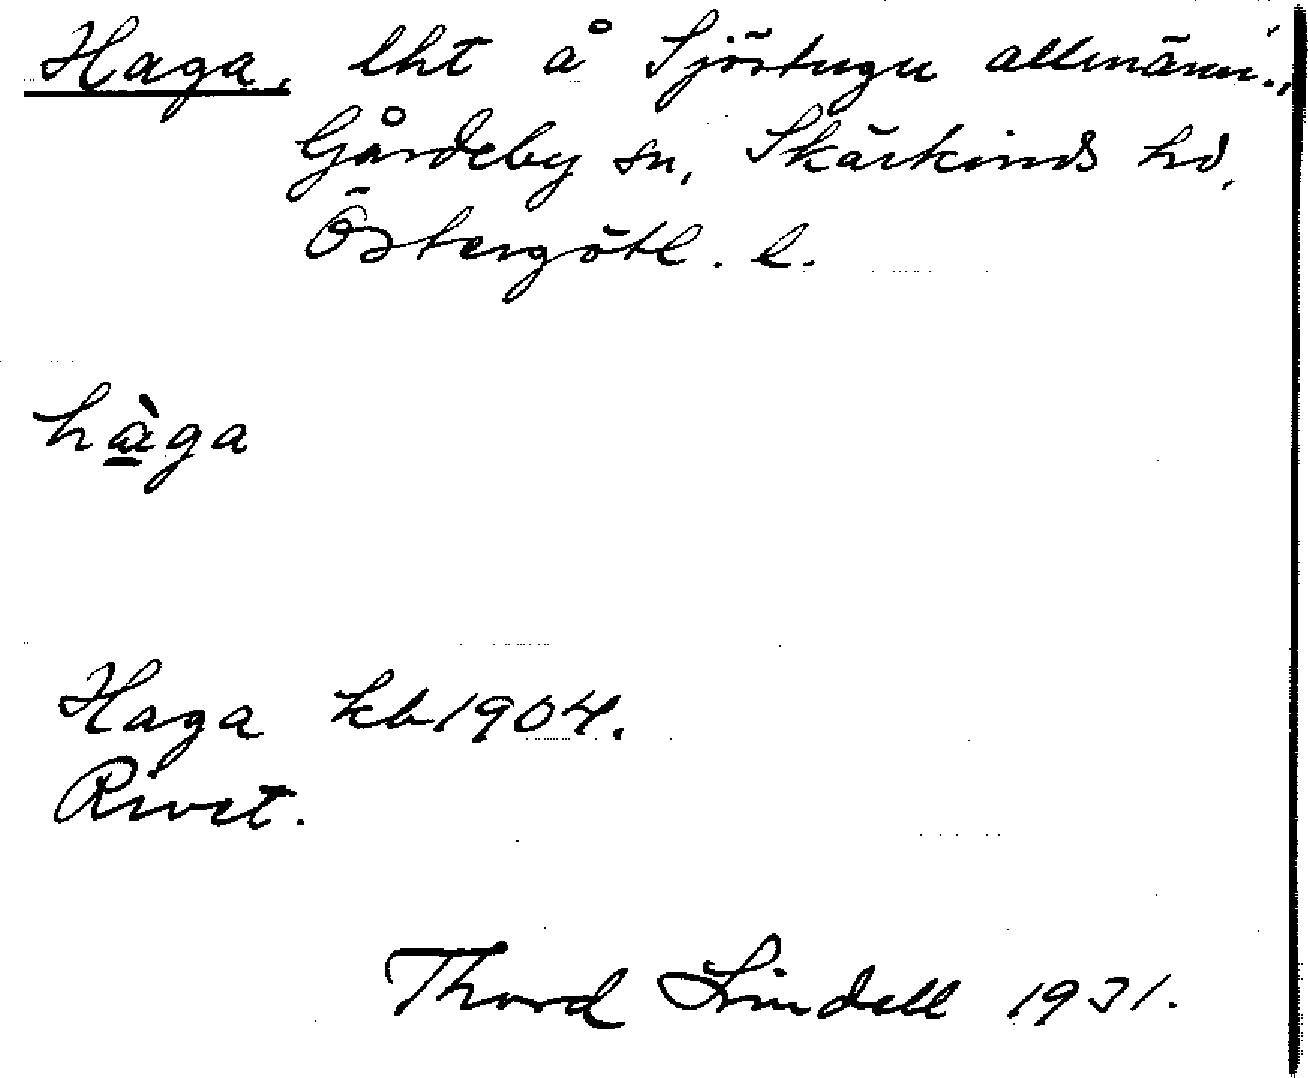 Haga, lht å Sjörtugu allmänn.,
Gårdeby sn, Skärkinds hd,
Östergötl. l.
hàga
Haga kb 1904.
Rivet.
Thord Lindell 1931.